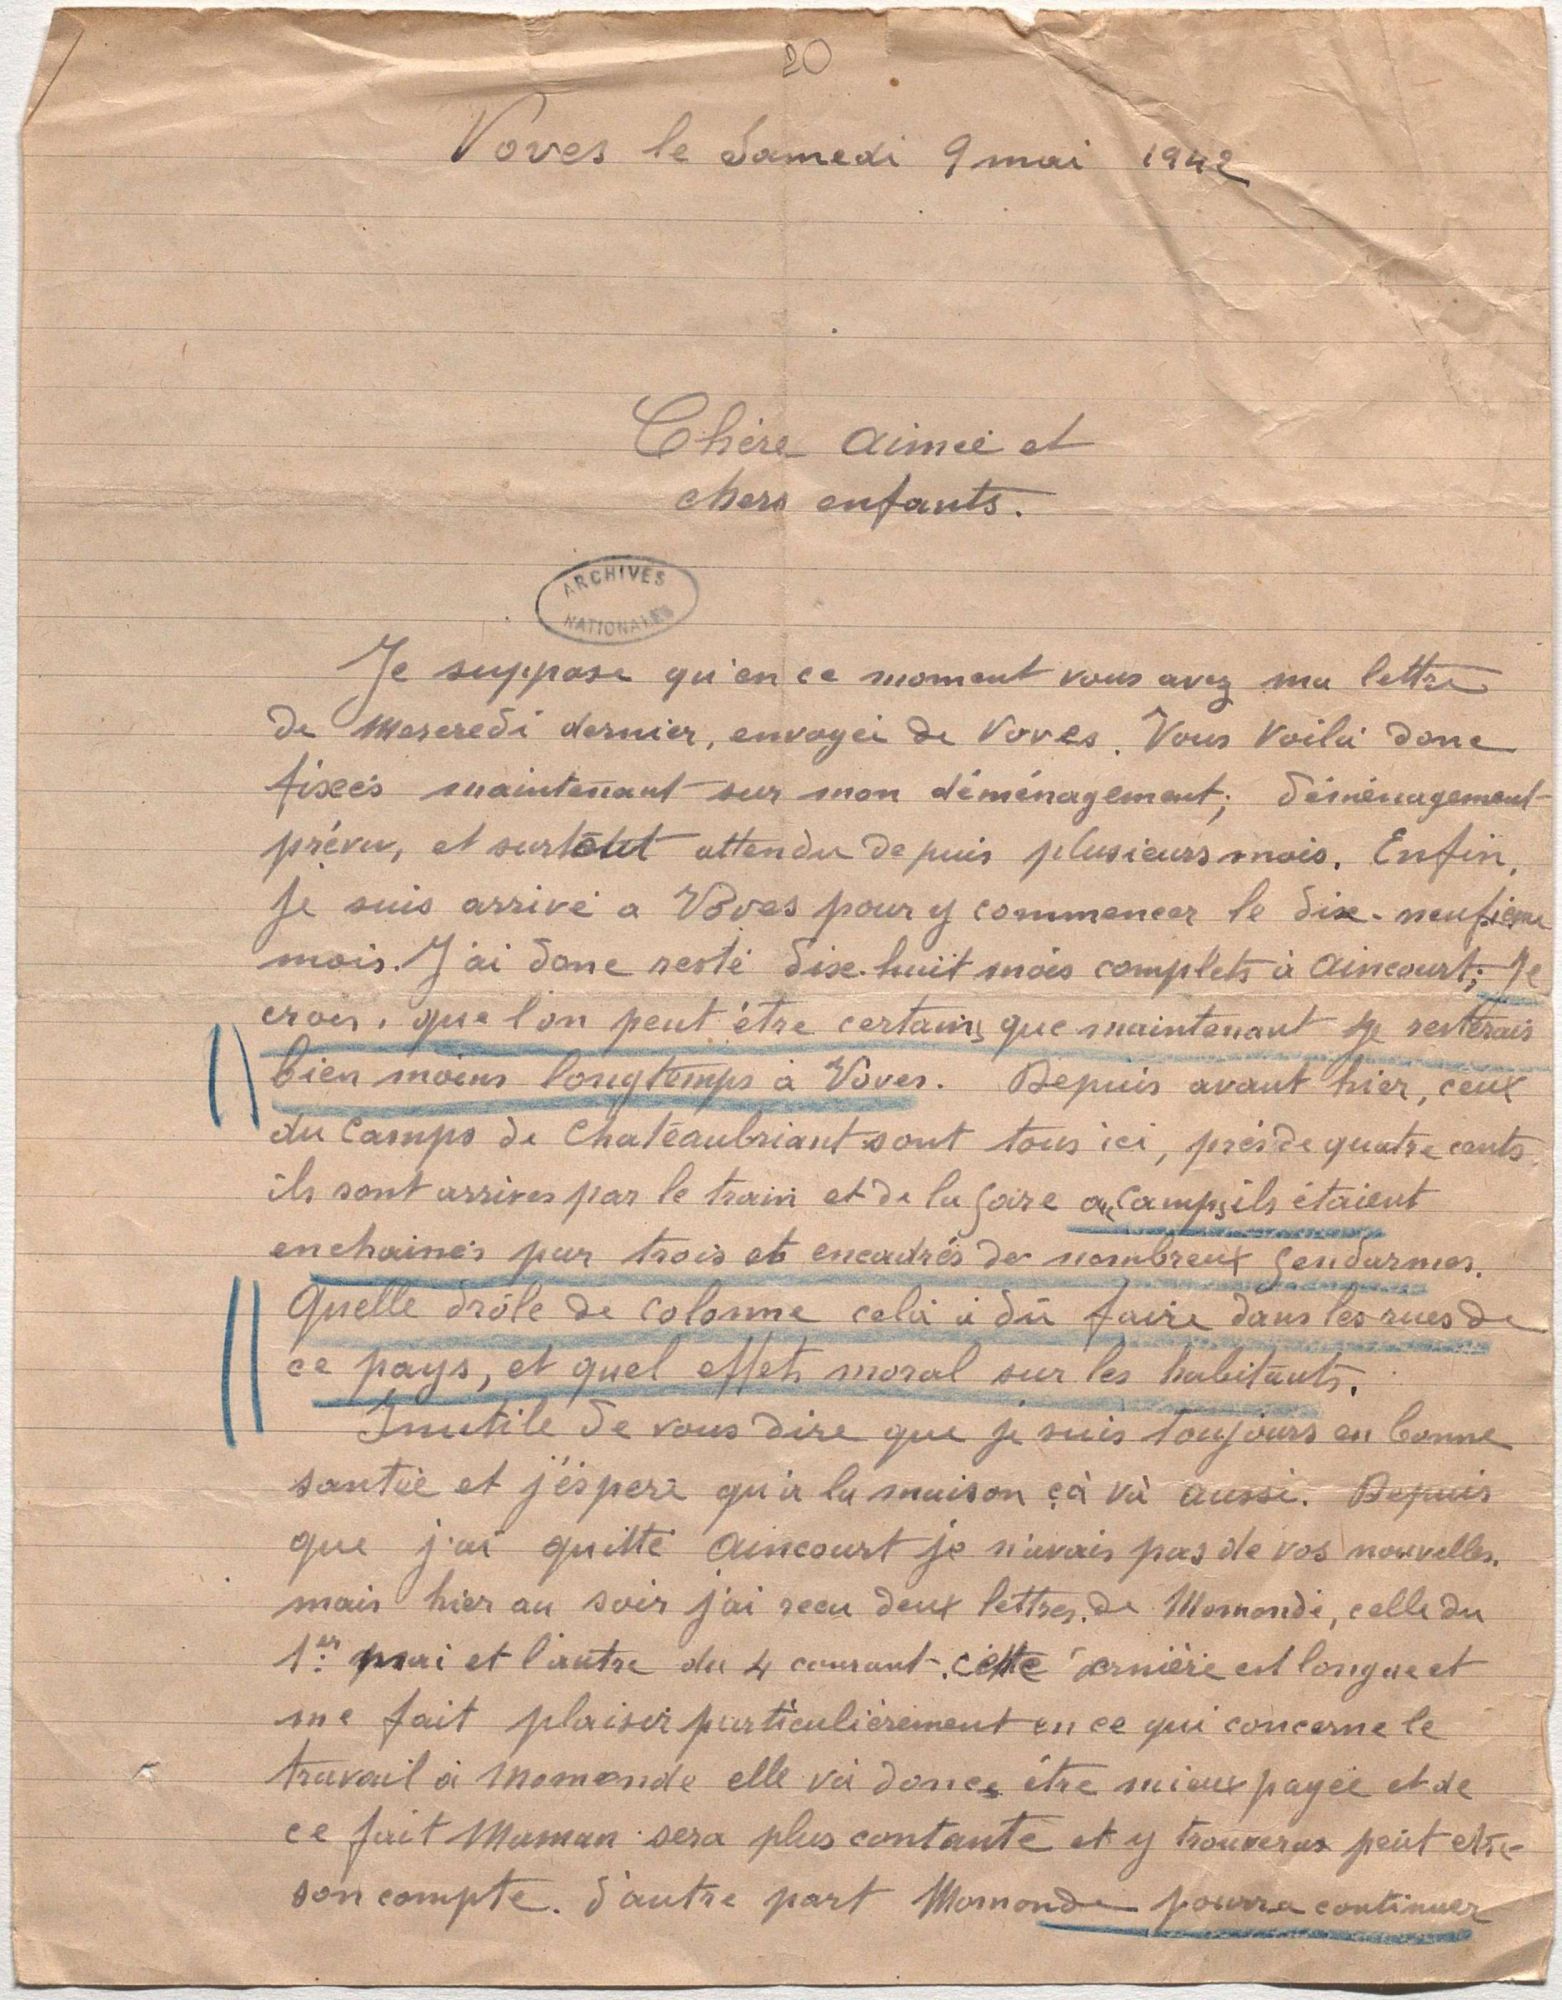 20
Voves le Samedi 9 mai 1942
Chère Aimée et
chers enfants.
ARCHIVES
NATIONALES
Je suppose qu'en ce moment vous avez ma lettre
de Mercredi dernier, envoyée de Voves. Vous voilà donc
fixés maintenant sur mon déménagement; déménagement
prévu, et surtout attendu depuis plusieurs mois. Enfin,
je suis arrivé a Voves pour y commencer le dix-neufième
mois. J'ai donc resté dix-huit mois complets à Aincourt; Je
crois, que l'on peut être certains que maintenant je resterais
bien moins longtemps à Voves. Depuis avant hier, ceux
du Camps de Chatéaubriant sont tous ici, près de quatre cents,
ils sont arrives par le train et de la gare au camps, ils étaient
enchainés par trois et encadrés de nombreux gendarmes.
Quelle drôle de colonne celà à dû faire dans les rues de
ce pays, et quel effets moral sur les habitants.
Inutile de vous dire que je suis toujours en bonne
santée et j'éspere qu'à la maison çà và aussi. Depuis
que j'ai quitté Aincourt je n'avais pas de vos nouvelles.
mais hier au soir j'ai recu deux lettres de Momonde, celle du
1er mai et l'autre du 4 courant. cette dernière est longue et
me fait plaisir particulièrement en ce qui concerne le
travail à Momonde elle và donc être mieux payée et de
ce fait Maman sera plus contante et y trouveras peut etre
son compte. d'autre part Momonde pourra continuer